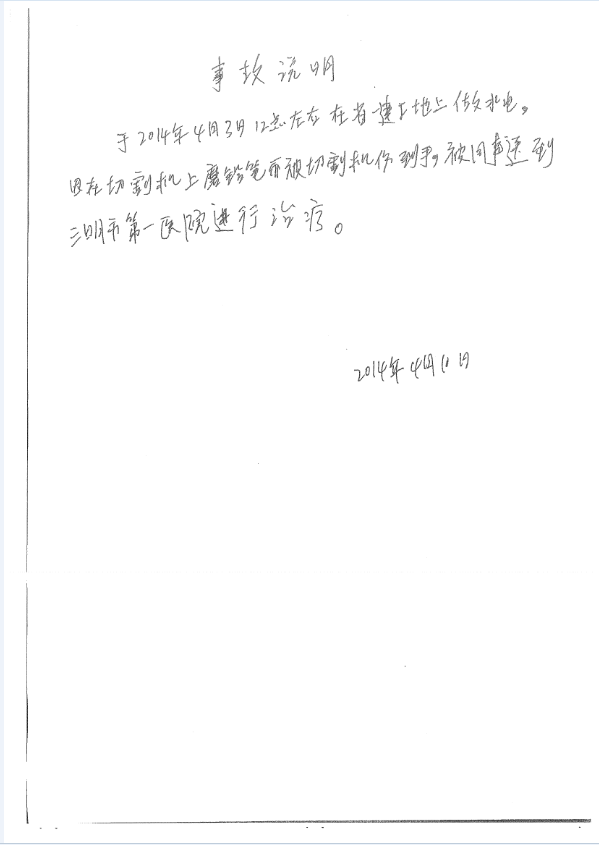 事故说明
于2014年4月3日12点左右在省建工地上做水电。
因在切割机上磨铅笔而被切割机伤到手,被同事送到
三明市第一医院进行治疗。
2014年4月10日